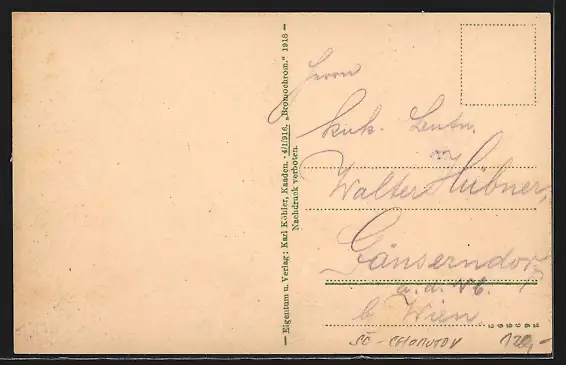 — Eigentum u. Verlag: Karl Köhler, Kaaden. - 4/1/916. „Bromochrom." 1918 —
Nachdruck verboten.
Herrn
kuk. Leutn.
Walter Hübner,
Gänserndorf
a. d. Nb.
b Wien
SČ - CHOMUTOV 120,-